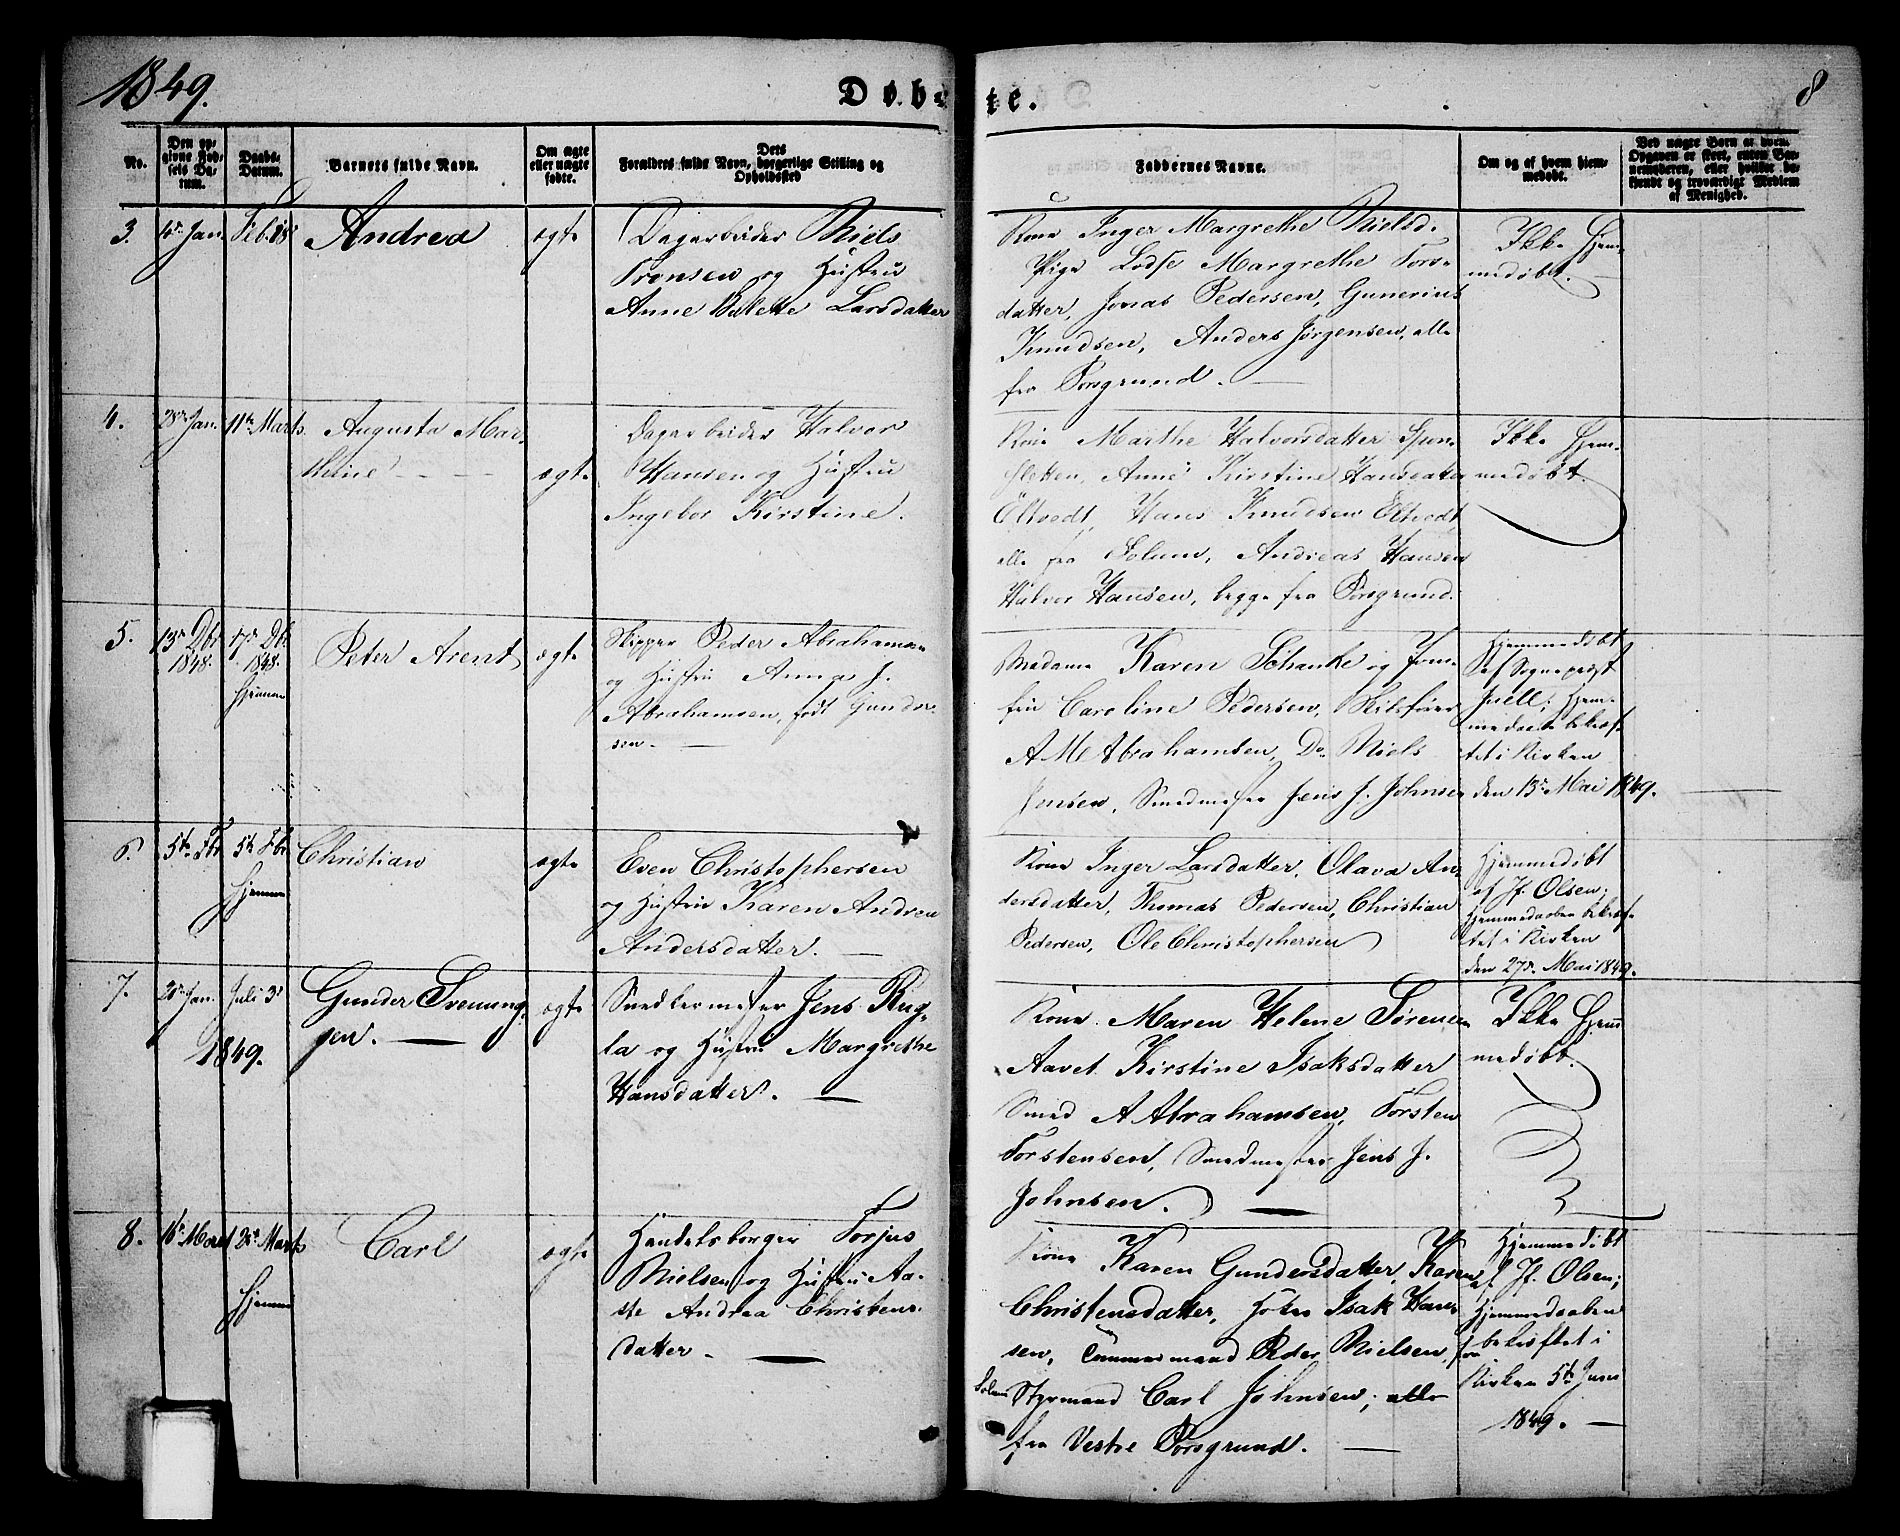 1849.
Døbte.
8
No.
Den opgivne Fødsels Datum.
Daabs-Datum.
Barnets fulde Navn.
Om ægte eller uægte fødte.
Dets Forældres fulde Navn, borgerlige Stilling og Opholdssted
Faddernes Navne.
Om og af hvem hjemmedøbt.
Ved uægte Børn af hvem Opgaven er skeet, enten Barnemoderen, eller hvilket bekjendt og troværdigt Medlem af Menighed.
3.
10de Jan.
Feb. 18
Andrea
ægte
Dagarbeider Niels
Tronsen og Hustru
Anne Larsdatter
Kone Inger Margrethe Nielsd.
Pige Lodse Margrethe Tors-
datter, Jonas Pedersen, Gunerius
Knudsen, Anders Jørgensen, alle
fra Porsgrund.
Ikke Hjem-
medøbt.
4.
28de Jan.
11te Marts
Augusta Mar-
thine
ægte
Dagarbeider Halvor
Hansen og Hustru
Ingebor Kirstine.
Kone Marthe Halvorsdatter Spon-
sletten, Anne Kirstine Hansdatter
Eltvedt, Hans Knudsen Eltvedt,
alle fra Solum, Andreas Hansen
Halvor Hansen, begge fra Porsgrund.
Ikke Hjem-
medøbt.
5.
13de Dbr
1848.
17de Dbr
1848.
hjemme
Peter Arent
ægte
Skipper Peder Abrahamsen
og Hustru Anna J.
Abrahamsen, født Gunder-
sen.
Madame Karen Schanke og Jom-
fru Caroline Pedersen, Skibsfører
A M Abrahamsen, Do. Niels
Jensen, Smedmester Jens J. Johnsen
Hjemmedøbt
af Sogneprest
Juell; Hjem-
medaaben bekræf-
tet i Kirken
den 13de Mai 1849.
6.
5te Fbr
5te Fbr
hjemme
Christian
ægte
Even Christophersen
og Hustru Karen Andrea
Andersdatter.
Kone Inger Larsdatter, Olava An-
dersdatter, Thomas Pedersen, Christian
Pedersen, Ole Christophersen
Hjemmedøbt
af Jf. Olsen;
Hjemmedaaben bekræf-
tet i Kirken
den 27de Mai 1849.
7.
20de Jan.
Juli 3
1849.
Gunder Svenung-
sen.
ægte
Snedkermester Jens Rug-
la og Hustru Margrethe
Hansdatter.
Kone Maren Helene Sørensen
Aavet Kirstine Isaksdatter
Smed A Abrahamsen, Torsten
Torstensen, Smedmester Jens J.
Johnsen.
Ikke Hjem-
medøbt.
8.
16de Marts
20de Marts
hjemme
Carl
ægte
Handelsborger Torjus
Nielsen og Hustru Aa-
ste Andrea Christens-
datter.
Kone Karen Gundersdatter, Karen
Christensdatter, Isak Han-
sen, Tømmermand Peder Nielsen, fra
Solum Styrmand Carl Johnsen; alle
fra Vestre Porsgrund.
Hjemmedøbt
af Jf. Olsen;
Hjemmedaaben
bekræftet i
Kirken 5te Juni
1849.